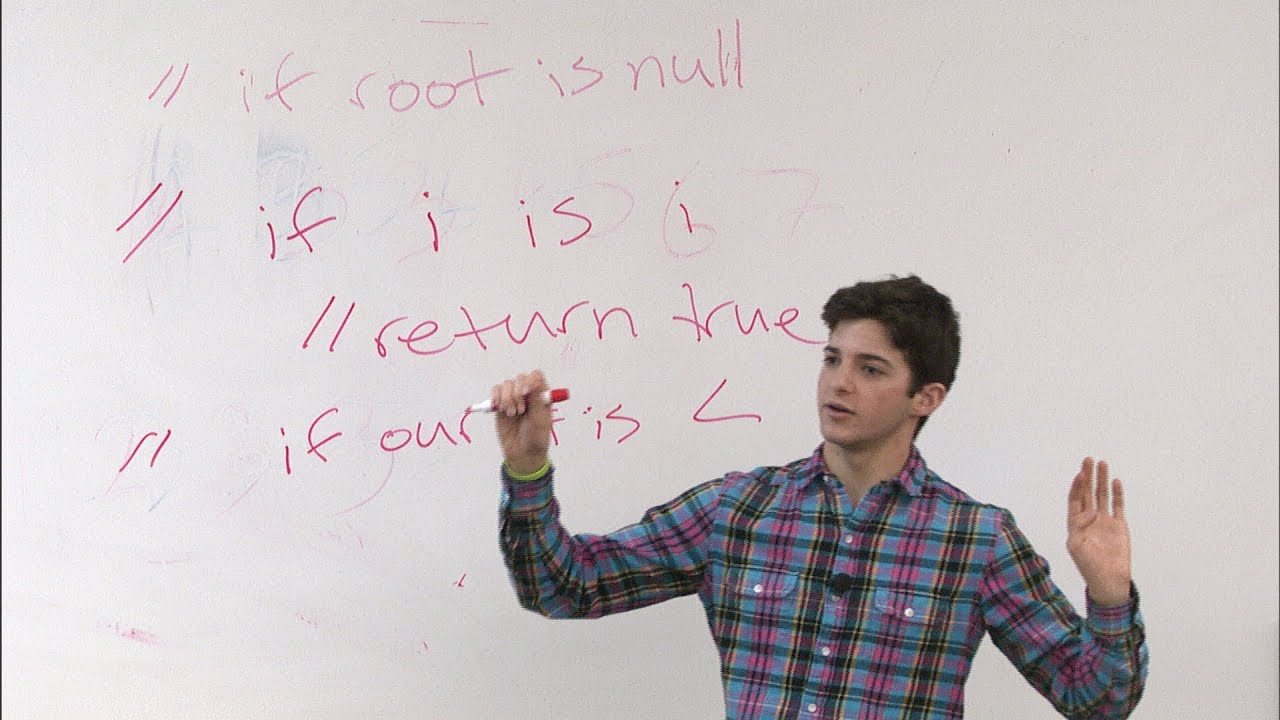 // if root is null
// if i is i
// return true
// if our is <